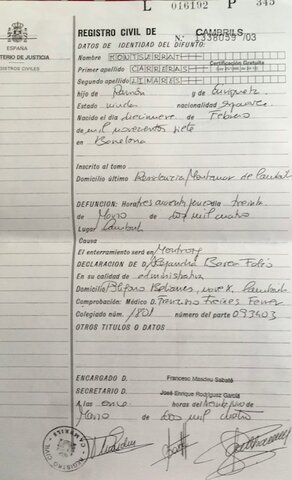 L 016192 P 345
ESPAÑA
MINISTERIO DE JUSTICIA
REGISTROS CIVILES
REGISTRO CIVIL DE CAMBRILS
DATOS DE IDENTIDAD DEL DIFUNTO: N.º 1338059 /03
Nombre MONTSERRAT
Certificación Gratuita
Primer apellido CARRERAS
Segundo apellido LINARES
hijo de Ramón y de Enriqueta
Estado viuda nacionalidad española
Nacido el día diecinueve de Febrero
de mil novecientos siete
en Barcelona
Inscrito al tomo
Domicilio último Residencia de Cambrils
DEFUNCION: Hora tres cuarenta y cinco día treinta
de Marzo de dos mil cuatro
Lugar Cambrils
Causa
El enterramiento será en
DECLARACION DE D. Alejandra
En su calidad de administrativa
Domicilio Cambrils
Comprobación: Médico D. Francisco Ferrer
Colegiado núm. 1801 número del parte 093403
OTROS TITULOS O DATOS
ENCARGADO D. Francesc Masdeu Sabaté
SECRETARIO D. José Enrique Rodríguez García
A las once horas del treinta y uno de
Marzo de dos mil cuatro
REGISTRO CIVIL CAMBRILS